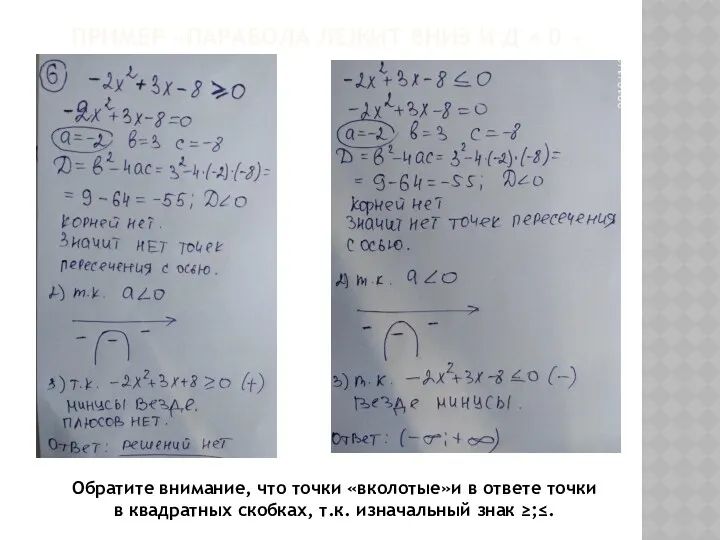 ПРИМЕР «ПАРАБОЛА ЛЕЖИТ ВНИЗ И Д < 0 »
6 -2x²+3x-8 ⩾0
-2x²+3x-8=0
a=-2 в=3 c=-8
D=в²-4ac=3²-4·(-2)·(-8)=
=9-64=-55; D<0
корней нет.
Значит нет точек
пересечения с осью.
2) т.к. a<0
- - -
3) т.к. -2x²+3x+8≥0 (+)
минусы везде.
плюсов нет.
Ответ: решений нет
-2x²+3x-8 ≤0
-2x²+3x-8=0
a=-2 в=3 c=-8
D=в²-4ac=3²-4·(-2)·(-8)=
=9-64=-55; D<0
корней нет
Значит нет точек пересечения
с осью.
2) т.к. a<0
- - -
3) т.к. -2x²+3x-8≤0 (-)
везде минусы.
Ответ: (-∞;+∞)
Обратите внимание, что точки «вколотые»и в ответе точки
в квадратных скобках, т.к. изначальный знак ≥;≤.